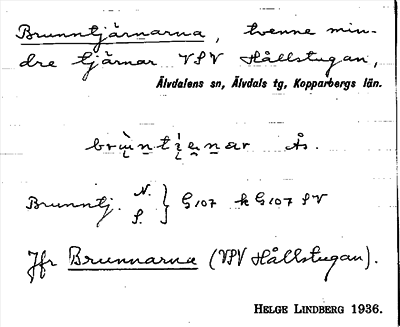 Brunntjärnarna, tvenne min-
dre tjärnar VSV Hållstugan,
Älvdalens sn, Älvdals tg, Kopparbergs län.
Ås.
Brunntj. N. } G107 k G107 SV
S.
Jfr Brunnarna (VSV Hållstugan).
HELGE LINDBERG 1936.